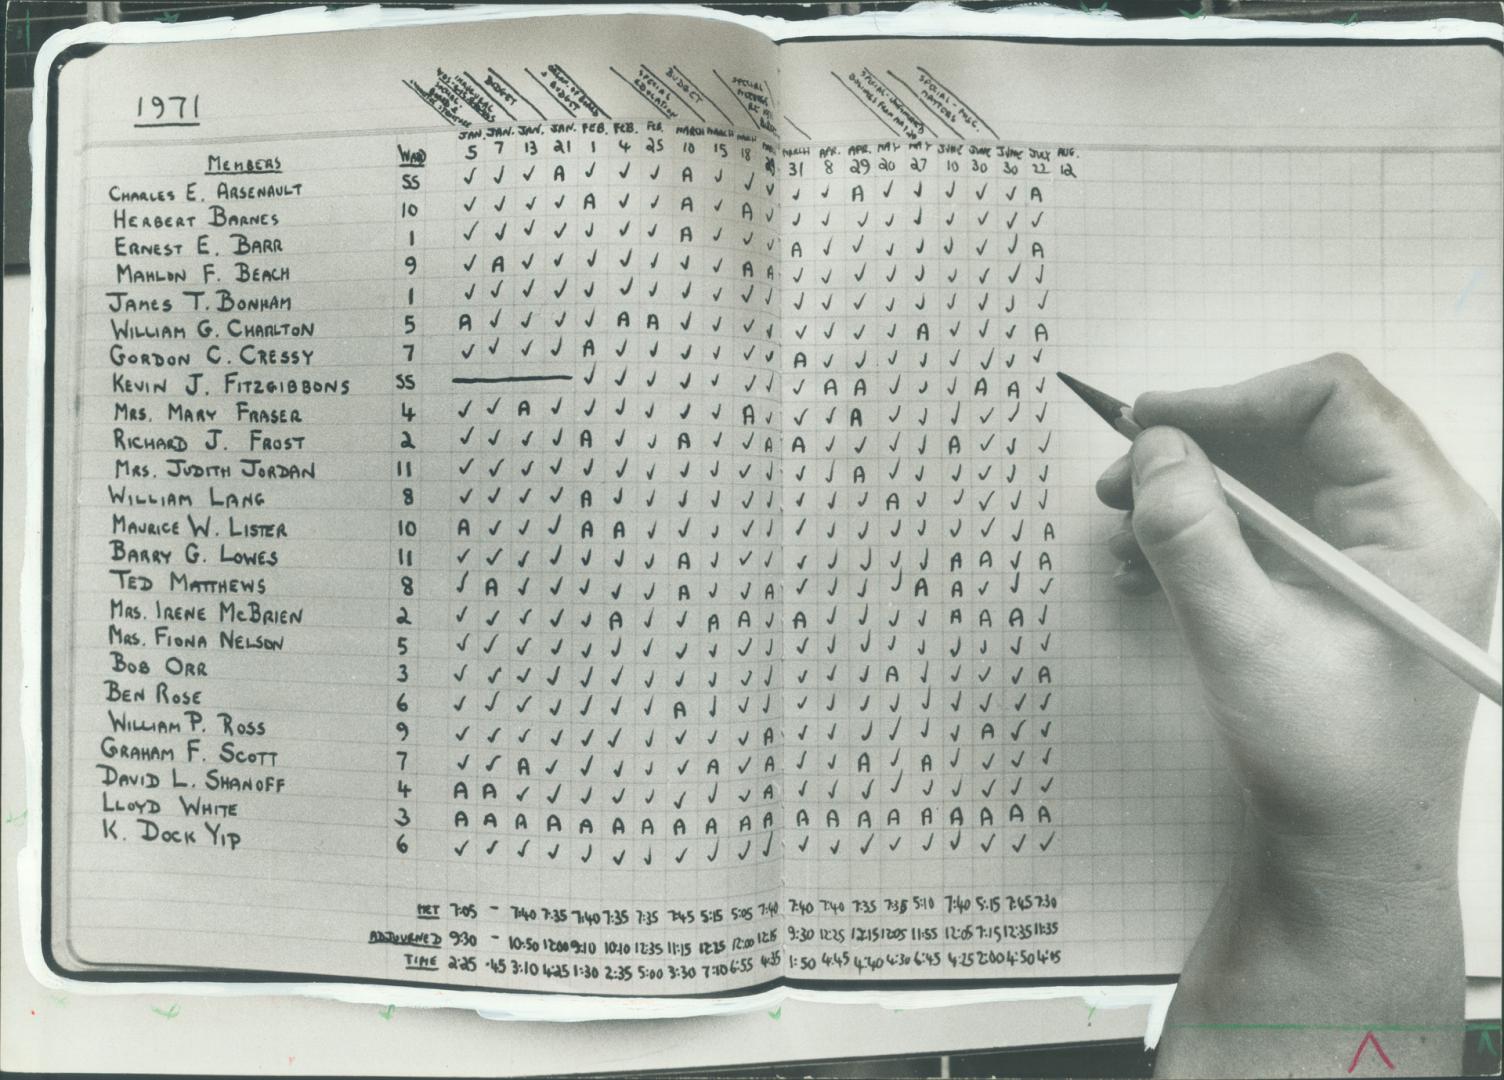 1971
BUDGET
BUDGET
SPECIAL EDUCATION
BUDGET
SPECIAL - MISC. MATTERS
JAN. JAN. JAN. JAN. FEB. FEB. FEB. MARCH MARCH MARCH MARCH MARCH APR. APR. MAY MAY JUNE JUNE JUNE JULY AUG.
MEMBERS WARD 5 7 13 21 1 4 25 10 15 18 29 31 8 29 20 27 10 30 30 22 12
CHARLES E. ARSENAULT SS ✓ ✓ ✓ A ✓ ✓ ✓ A ✓ ✓ ✓ ✓ ✓ A ✓ ✓ ✓ ✓ ✓ A
HERBERT BARNES 10 ✓ ✓ ✓ ✓ A ✓ ✓ A ✓ A ✓ ✓ ✓ ✓ ✓ ✓ ✓ ✓ ✓ ✓
ERNEST E. BARR 1 ✓ ✓ ✓ ✓ ✓ ✓ ✓ A ✓ ✓ ✓ A ✓ ✓ ✓ ✓ ✓ ✓ ✓ A
MAHLON F. BEACH 9 ✓ A ✓ ✓ ✓ ✓ ✓ ✓ ✓ A A ✓ ✓ ✓ ✓ ✓ ✓ ✓ ✓ ✓
JAMES T. BONHAM 1 ✓ ✓ ✓ ✓ ✓ ✓ ✓ ✓ ✓ ✓ ✓ ✓ ✓ ✓ ✓ ✓ ✓ ✓ ✓ ✓
WILLIAM G. CHARLTON 5 A ✓ ✓ ✓ ✓ A A ✓ ✓ ✓ ✓ ✓ ✓ ✓ ✓ A ✓ ✓ ✓ A
GORDON C. CRESSY 7 ✓ ✓ ✓ ✓ A ✓ ✓ ✓ ✓ ✓ ✓ A ✓ ✓ ✓ ✓ ✓ ✓ ✓ ✓
KEVIN J. FITZGIBBONS SS — ✓ ✓ ✓ ✓ ✓ ✓ ✓ ✓ A A ✓ ✓ ✓ A A ✓
MRS. MARY FRASER 4 ✓ ✓ A ✓ ✓ ✓ ✓ ✓ ✓ A ✓ ✓ ✓ A ✓ ✓ ✓ ✓ ✓ ✓
RICHARD J. FROST 2 ✓ ✓ ✓ ✓ A ✓ ✓ A ✓ ✓ A A ✓ ✓ ✓ ✓ A ✓ ✓ ✓
MRS. JUDITH JORDAN 11 ✓ ✓ ✓ ✓ ✓ ✓ ✓ ✓ ✓ ✓ ✓ ✓ ✓ A ✓ ✓ ✓ ✓ ✓ ✓
WILLIAM LANG 8 ✓ ✓ ✓ ✓ A ✓ ✓ ✓ ✓ ✓ ✓ ✓ ✓ ✓ A ✓ ✓ ✓ ✓ ✓
MAURICE W. LISTER 10 A ✓ ✓ ✓ A A ✓ ✓ ✓ ✓ ✓ ✓ ✓ ✓ ✓ ✓ ✓ ✓ ✓ A
BARRY G. LOWES 11 ✓ ✓ ✓ ✓ ✓ ✓ ✓ A ✓ ✓ ✓ ✓ ✓ ✓ ✓ ✓ A A ✓ A
TED MATTHEWS 8 ✓ A ✓ ✓ ✓ ✓ ✓ A ✓ ✓ A ✓ ✓ ✓ ✓ A A ✓ ✓ ✓
MRS. IRENE McBRIEN 2 ✓ ✓ ✓ ✓ ✓ A ✓ ✓ A A ✓ A ✓ ✓ ✓ ✓ A A A ✓
MRS. FIONA NELSON 5 ✓ ✓ ✓ ✓ ✓ ✓ ✓ ✓ ✓ ✓ ✓ ✓ ✓ ✓ ✓ ✓ ✓ ✓ ✓ ✓
BOB ORR 3 ✓ ✓ ✓ ✓ ✓ ✓ ✓ ✓ ✓ ✓ ✓ ✓ ✓ ✓ A ✓ ✓ ✓ ✓ A
BEN ROSE 6 ✓ ✓ ✓ ✓ ✓ ✓ ✓ A ✓ ✓ ✓ ✓ ✓ ✓ ✓ ✓ ✓ ✓ ✓ ✓
WILLIAM P. ROSS 9 ✓ ✓ ✓ ✓ ✓ ✓ ✓ ✓ ✓ ✓ A ✓ ✓ ✓ ✓ ✓ ✓ A ✓ ✓
GRAHAM F. SCOTT 7 ✓ ✓ A ✓ ✓ ✓ ✓ ✓ A ✓ A ✓ ✓ A ✓ A ✓ ✓ ✓ ✓
DAVID L. SHANOFF 4 A A ✓ ✓ ✓ ✓ ✓ ✓ ✓ ✓ A ✓ ✓ ✓ ✓ ✓ ✓ ✓ ✓ ✓
LLOYD WHITE 3 A A A A A A A A A A A A A A A A A A A A
K. DOCK YIP 6 ✓ ✓ ✓ ✓ ✓ ✓ ✓ ✓ ✓ ✓ ✓ ✓ ✓ ✓ ✓ ✓ ✓ ✓ ✓ ✓
MET 7:05 – 7:40 7:35 7:40 7:35 7:35 7:45 5:15 5:05 7:40 7:40 7:40 7:35 7:35 5:10 7:40 5:15 7:45 7:30
ADJOURNED 9:30 – 10:50 12:00 9:10 10:10 12:35 11:15 12:25 12:00 12:15 9:30 12:25 12:15 12:05 11:55 12:05 7:15 12:35 11:35
TIME 2:25 .45 3:10 4:25 1:30 2:35 5:00 3:30 7:10 6:55 4:35 1:50 4:45 4:40 4:30 6:45 4:25 2:00 4:50 4:05